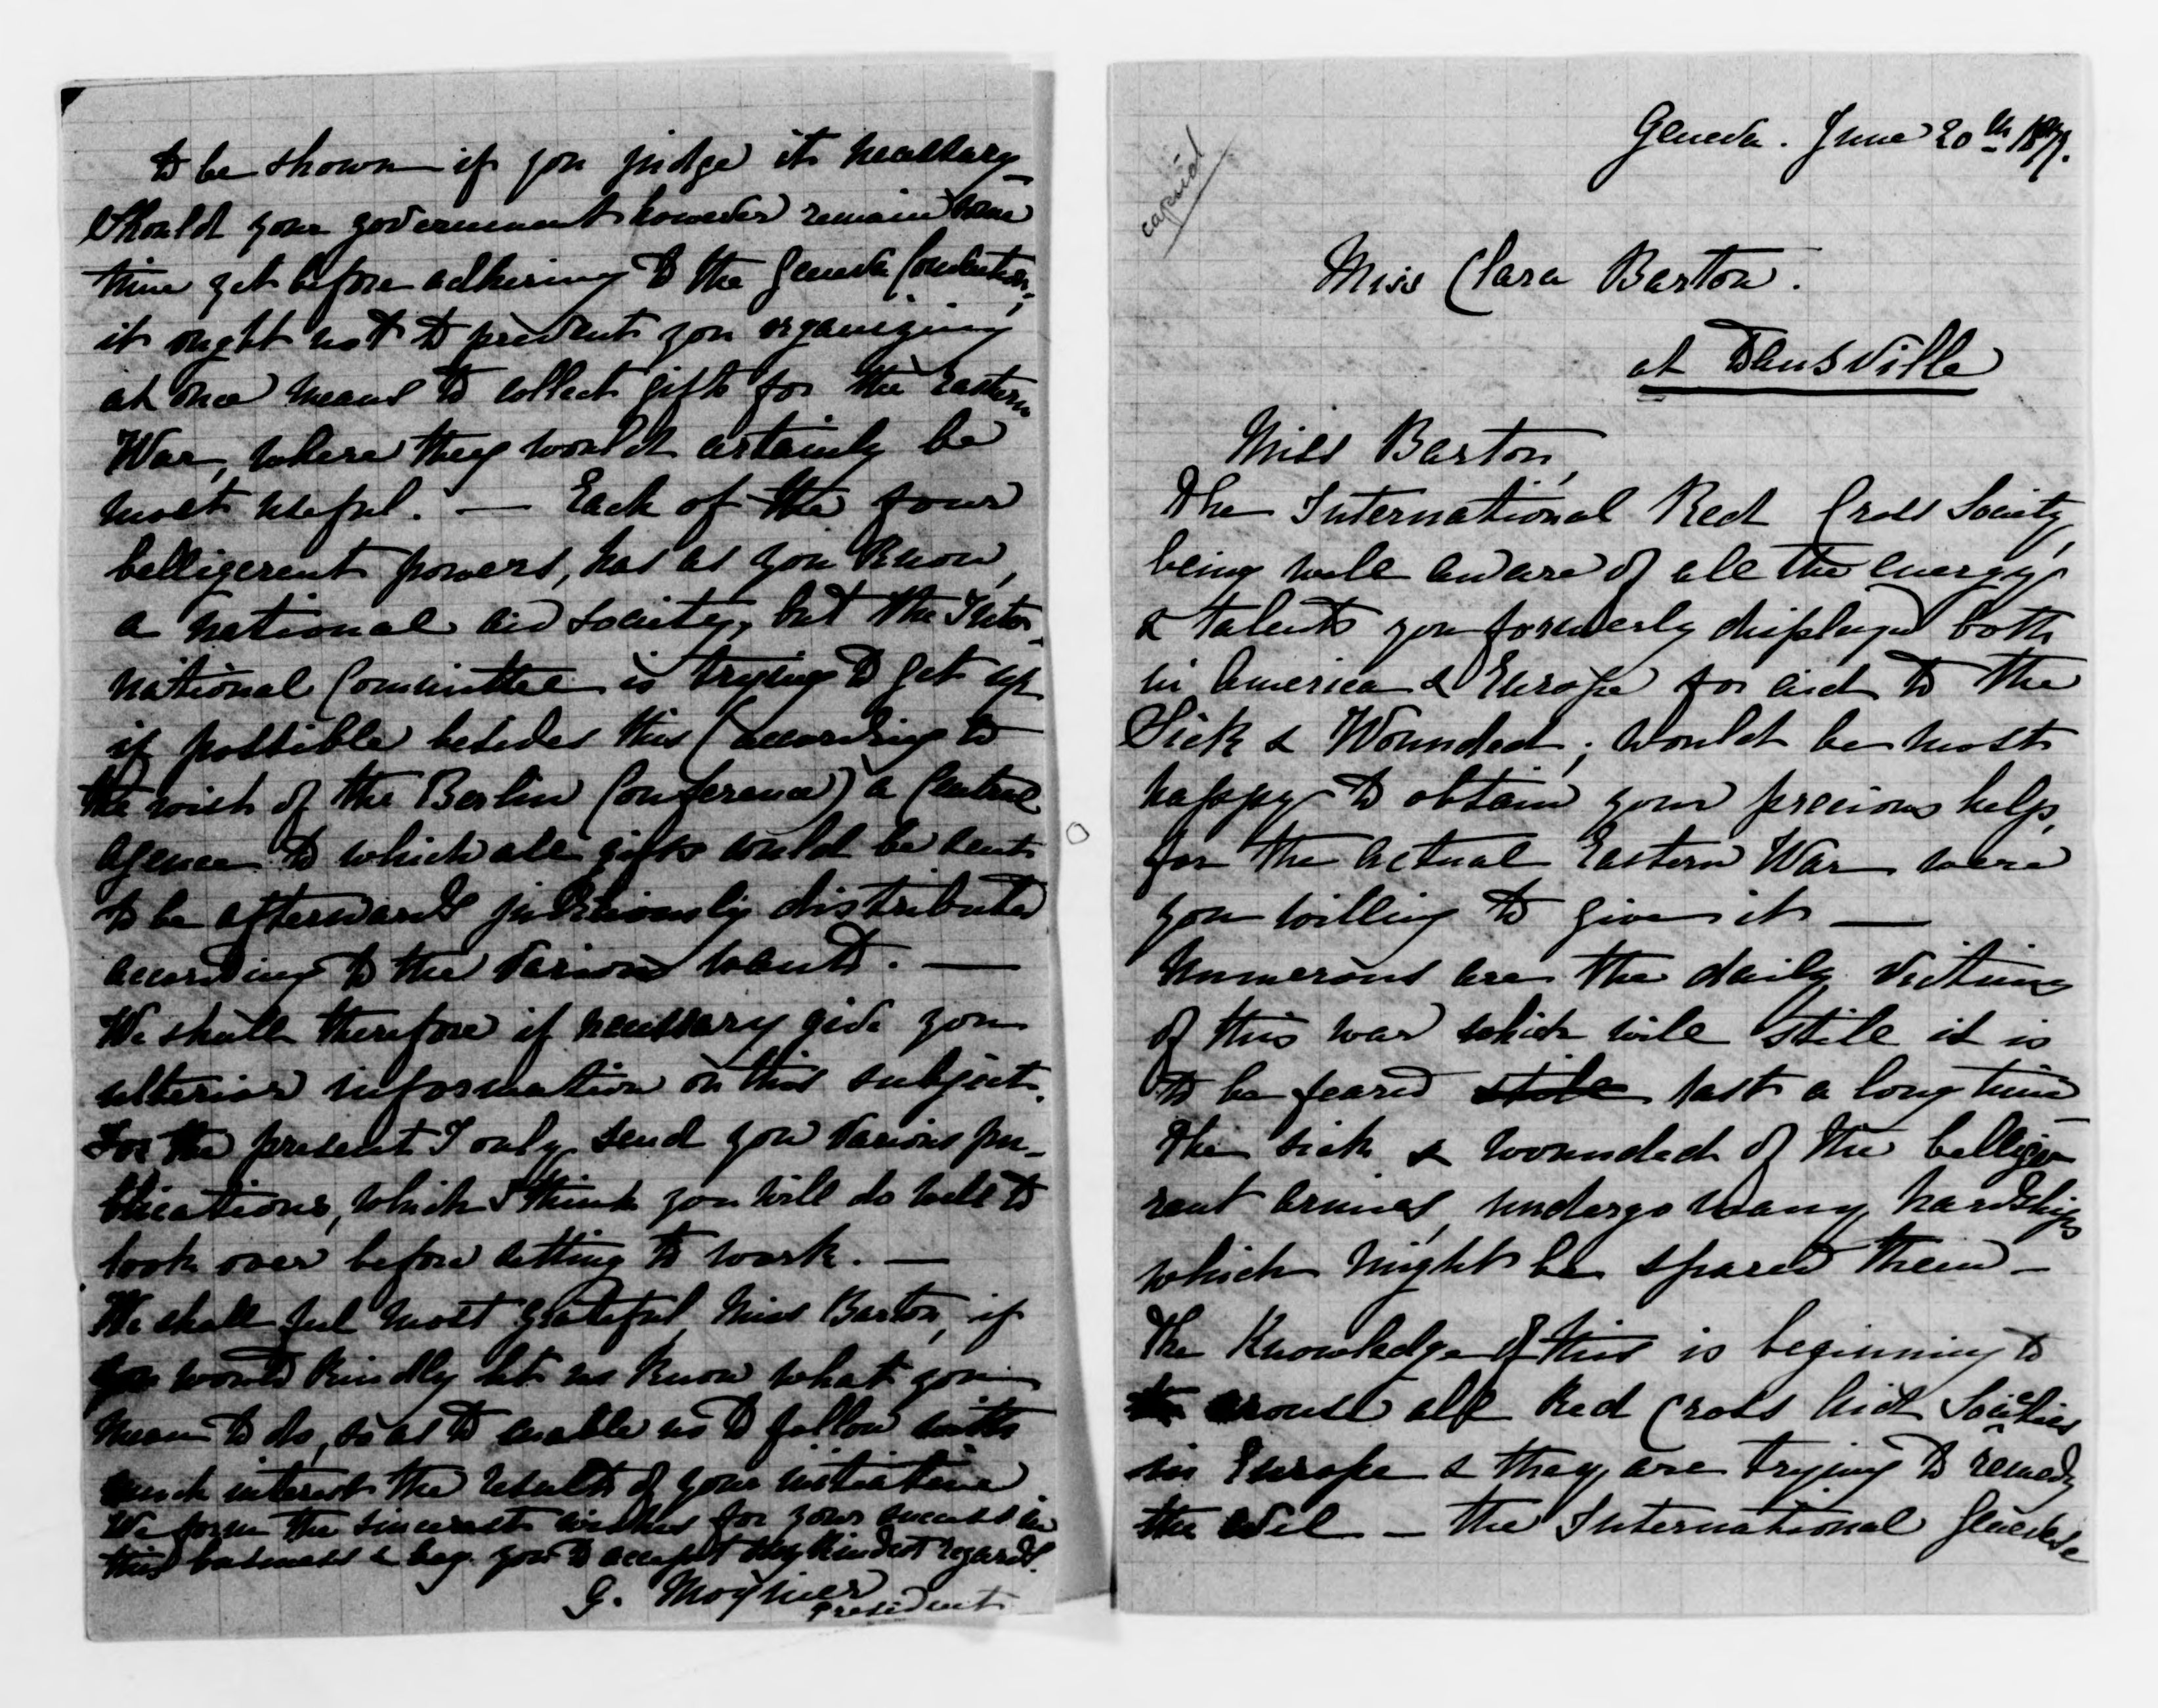 to be shown if you judge it necessary
Should your government however remain some
time yet before adhering to the Geneva Convention,
it ought not to prevent you organizing
at once means to collect gifts for the Eastern
War, where they would certainly be
most useful. — Each of the four
belligerent powers, has as you know,
a national aid society, but the Inter-
national Committee is trying to get up
if possible besides this (according to
the wish of the Berlin Conference) a Central
agence to which all gifts could be sent
to be afterwards judiciously distributed
according to the various wants. —
We shall therefore if necessary give you
ulterior information on this subject.
For the present I only send you various pu-
blications, which I think you will do well to
look over before setting to work. —
We shall feel most grateful, Miss Barton, if
you would kindly let us know what you
mean to do, so as to enable us to follow with
much interest the results of your initiative
We form the sincerest wishes for your success in
this business & beg you to accept my kindest regards.
G. Moynier
President
copied
Geneva. June 20th 1877.
Miss Clara Barton.
at Dansville
Miss Barton,
The International Red Cross Society,
being well aware of all the energy
& talents you formerly displayed both
in America & Europe for aid to the
Sick & Wounded; would be most
happy to obtain your precious help,
for the actual Eastern War were
you willing to give it —
Numerous are the daily victims
of this war which will still it is
to be feared still last a long time
The sick & wounded of the bellige-
rent armies, undergo many hardships
which might be spared them —
The Knowledge of this is beginning to
to arouse all Red Cross Aid Societies
in Europe & they are trying to remedy
the evil — the International Geneva